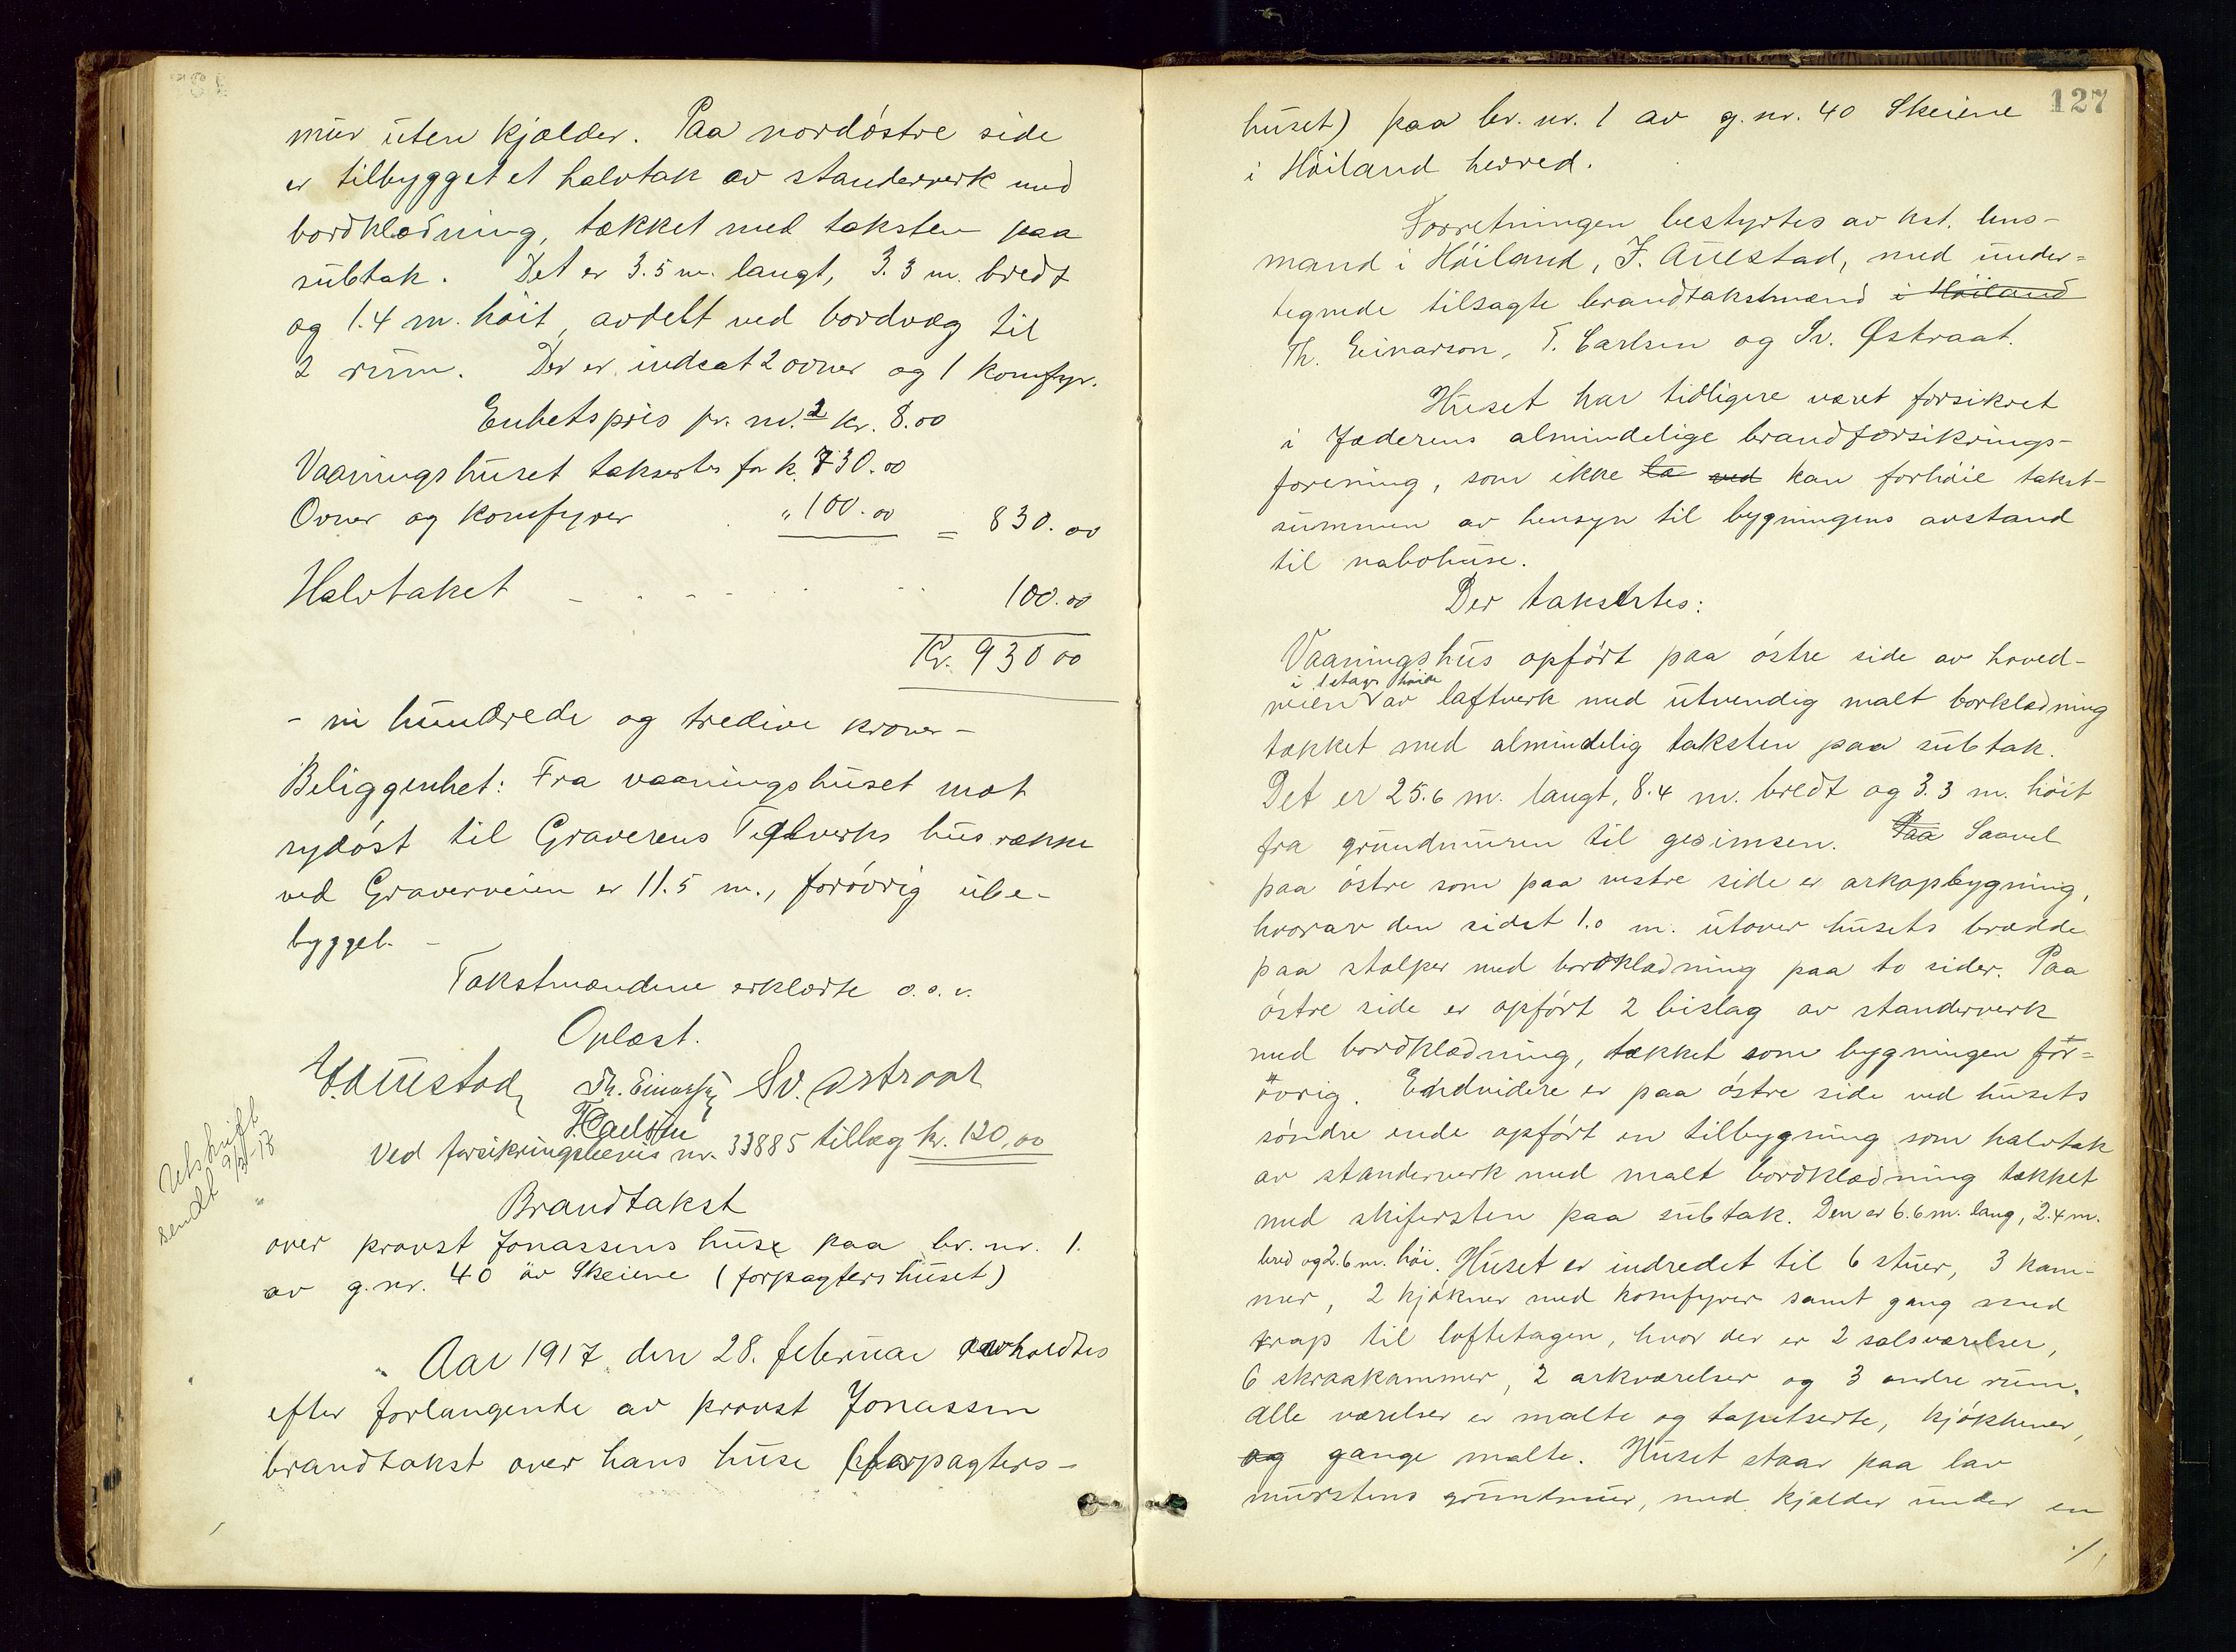 mur uten kjælder. Paa nordöstre side
er tilbygget et halvtak av standerverk med
bordklædning, tækket med taksten paa
subtak. Det er 3.5 m. langt, 3.3 m. bredt
og 1.4 m. höit, avdelt ved bordvæg til
2 rum. Der er indsat 2 ovner og 1 komfyr.
Enhetspris pr. m.² kr. 8.00
Vaaningshuset taksertes for k. 730.00
Ovner og komfyrer " 100.00 = 830.00
Halvtaket - - - - 100.00
Kr. 930 00
- ni hundrede og tredive kroner -
Beliggenhet: Fra vaaningshuset mot
sydöst til Graverens Teglverks husrække
ved Graverveien er 11.5 m., forövrig ube-
bygget. -
Takstmændene erklærte o.s.v.
Oplæst.
F. Auestad, Th. Einarson, Sv. Østraat
T. Carlsen
Ved forsikringsbevis nr. 33885 tillæg kr. 120,00
Utskrift
sendt
Brandtakst
over provst Jonassens huse paa br. nr. 1.
av g. nr. 40 av Skeiene (forpagtershuset)
Aar 1917 den 28. februar avholdtes
efter forlangende av provst Jonassen
brandtakst over hans huse (forpagters-
127
huset) paa br. nr. 1 av g. nr. 40 Skeiene
i Höiland herred.
Forretningen bestyrtes av kst. lens-
mand i Höiland, F. Auestad, med under-
tegnede tilsagte brandtakstmænd i Höiland
Th. Einarson, T. Carlsen og Sv. Østraat.
Huset har tidligere været forsikret
i Jæderens almindelige brandforsikrings-
forening, som ikke ta ved kan forhöie takst-
summen av hensyn til bygningens avstand
til nabohuse.
Der taksertes:
Vaaningshus opfört paa östre side av hoved-
i 1 etages höide
veien av laftverk med utvendig malt borklædning
tækket med almindelig taksten paa subtak.
Det er 25.6 m. langt, 8.4 m. bredt og 3.3 m. höit
fra grundmuren til gesimsen. Paa Saavel
paa östre som paa vestre side er arkopbygning,
hvorav den sidst 1.0 m. utover husets bredde
paa stolper med bordklædning paa to sider. Paa
östre side er opfört 2 bislag av standerverk
med bordklædning, tækket som bygningen for-
övrig. Endvidere er paa östre side ved husets
söndre ende opfört en tilbygning som halvtak
av standerverk med malt bordklædning tækket
med skifersten paa subtak. Den er 6.6 m. lang, 2.4 m.
bred og 2.6 m. höi. Huset er indredet til 6 stuer, 3 kam-
mer, 2 kjökner med komfyrer samt gang med
trap til loftetagen, hvor der er 2 salsværelser,
6 skraakammer, 2 arkværelser og 3 andre rum.
Alle værelser er malte og tapetserte, kjökkener,
og gange malte. Huset staar paa lav
murstens grundmur, med kjælder under en
./.